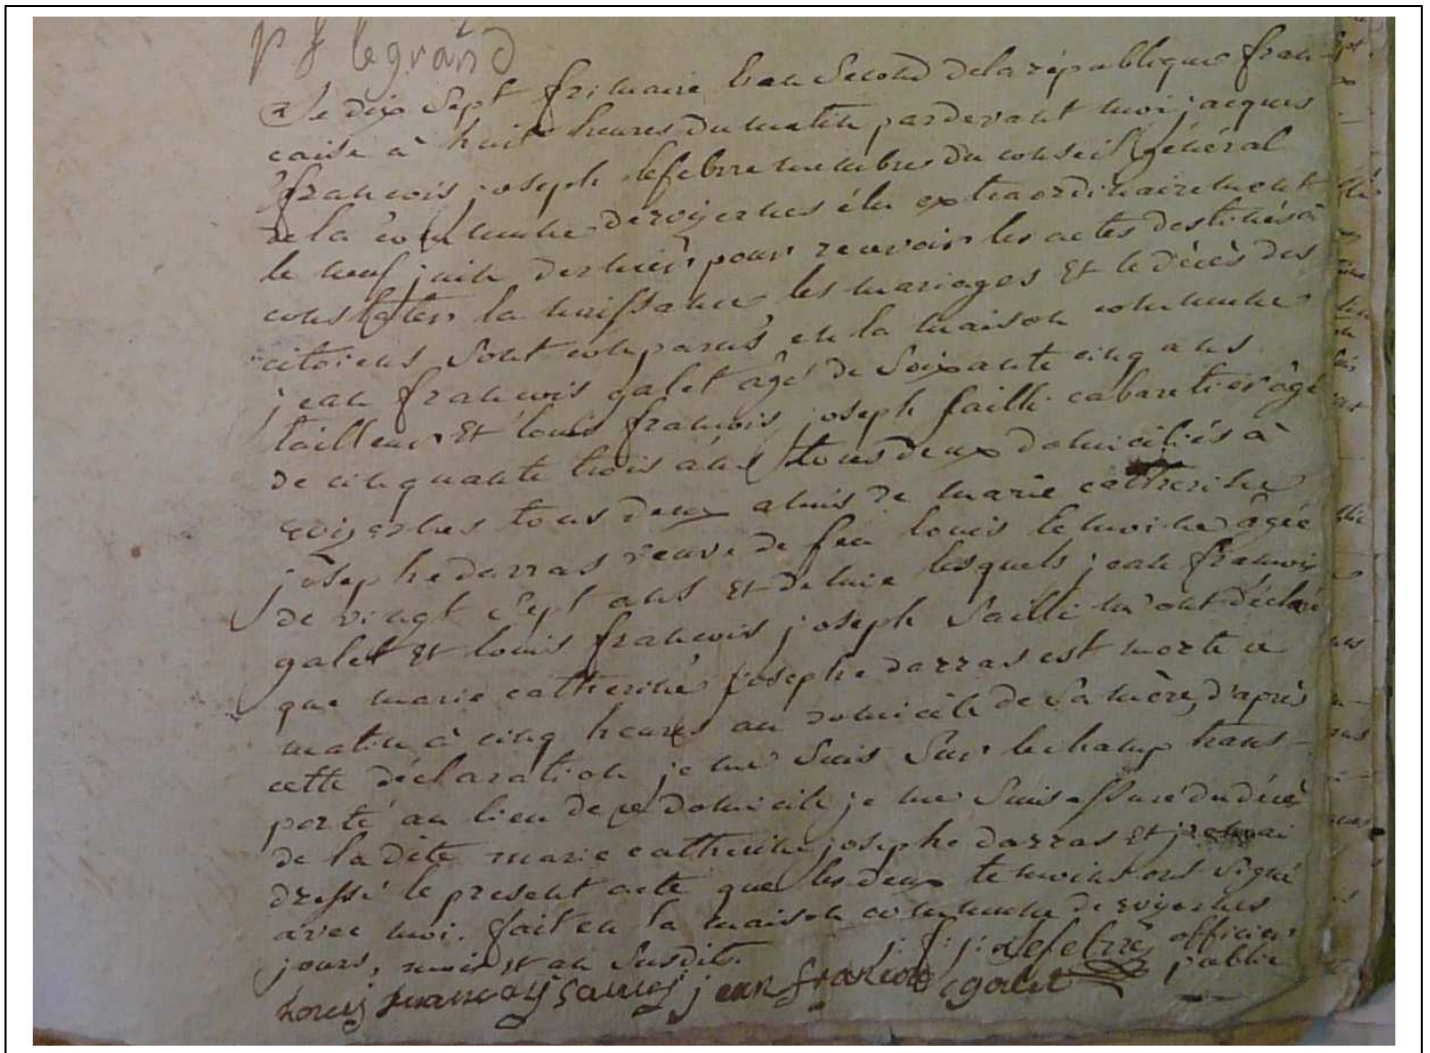 legrand
Le dix Sept frimaire l'an Second de la république fran-
caise à huit heures du matin pardevant moi jacques
francois joseph lefebvre membre du conseil général
de la commune de royernes élu extraordinairement
le neuf juin dernier pour recevoir les actes destinés à
constater la naissance, les mariages et le décès des
citoiens sont comparus en la maison commune
jean francois galet âgé de Soixante cinq ans
tailleur et louis francois joseph sailli cabaretier âgé
de cinquante trois ans tous deux domiciliés à
tous deux amis de marie catherine
josephe darras veuve de feu louis lemoine âgée
de vingt Sept ans et demie lesquels jean francois
galet et louis francois joseph Sailli m'ont déclaré
que marie catherine josephe darras est morte ce
matin à cinq heures au domicile de Sa mère, d'après
cette déclaration je me Suis Sur le champ trans-
porté au lieu de ce domicile je me Suis assuré du décès
de la dite marie catherine josephe darras et j'en ai
dressé le present acte que les deux temoins ont Signé
avec moi. fait en la maison commune de
jours, mois et an Susdits.
j: f: j: Lefebvre officier
public
Louis francois jean francois galet